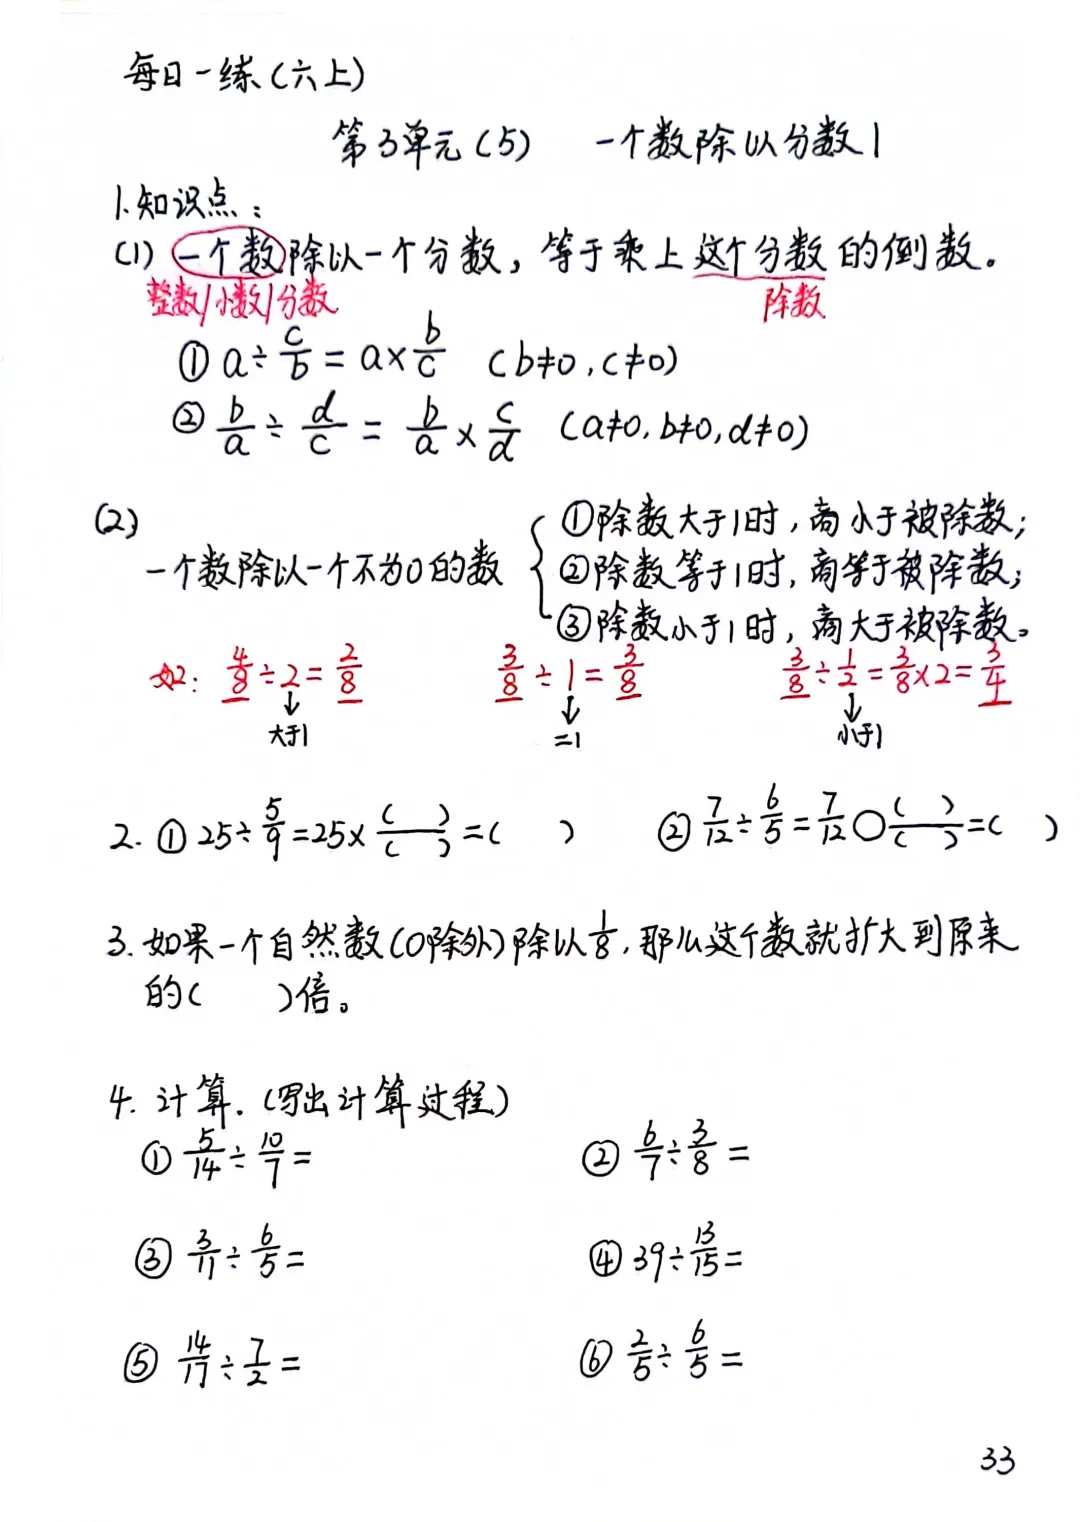 每日一练(六上)
第3单元(5) 一个数除以分数1
1.知识点:
(1)一个数除以一个分数,等于乘上这个分数的倒数。
整数/小数/分数 除数
①a÷c/b=a×b/c (b≠0,c≠0)
②b/a÷d/c=b/a×c/d (a≠0,b≠0,d≠0)
(2)
一个数除以一个不为0的数
①除数大于1时,商小于被除数;
②除数等于1时,商等于被除数;
③除数小于1时,商大于被除数。
如: 4/8÷2=2/8 3/8÷1=3/8 3/8÷1/2=3/8×2=3/4
↓ ↓ ↓
大于1 =1 小于1
2.①25÷5/9=25×( )/( )=( ) ②7/12÷6/5=7/12○( )/( )=( )
3.如果一个自然数(0除外)除以1/8,那么这个数就扩大到原来
的( )倍。
4.计算.(写出计算过程)
①5/14÷10/7= ②6/7÷3/8=
③3/11÷6/5= ④39÷13/15=
⑤14/17÷7/2= ⑥2/5÷6/5=
33